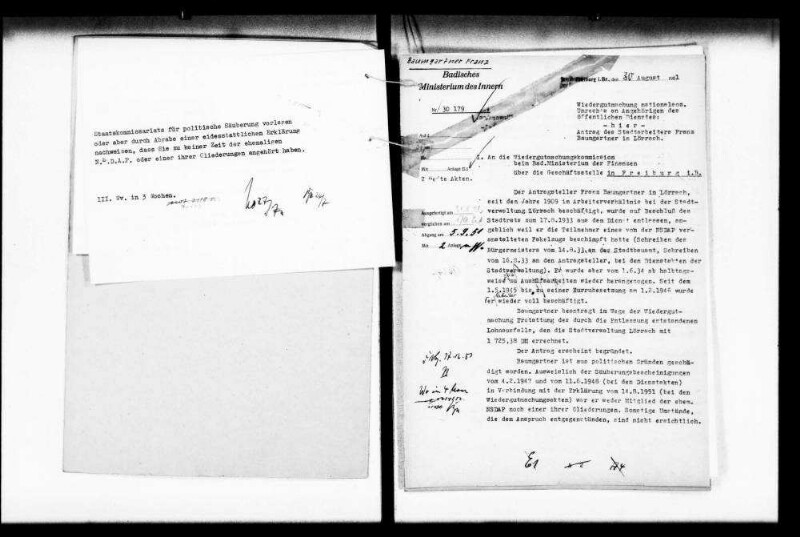 Staatskommissariats für politische Säuberung vorlegen
oder aber durch Abgabe einer eidesstattlichen Erklärung
nachweisen, dass Sie zu keiner Zeit der ehemaligen
N.S.D.A.P. oder einer ihrer Gliederungen angehört haben.
III. Wv. in 3 Wochen.
Baumgartner Franz
Badisches
Ministerium des Innern
Freiburg i.Br., den 30 August 1951
Nr. 30 179
Wiedergutmachung nationalsoz.
Unrechts an Angehörigen des
öffentlichen Dienstes;
- hier -
Antrag des Stadtarbeiters Franz
Baumgartner in Lörrach.
I. An die Wiedergutmachungskommission
beim Bad. Ministerium der Finanzen
über die Geschäftsstelle in Freiburg i.B.
2 Hefte Akten.
Der Antragsteller Franz Baumgartner in Lörrach,
seit dem Jahre 1909 im Arbeiterverhältnis bei der Stadt-
verwaltung Lörrach beschäftigt, wurde auf Beschluß des
Stadtrats zum 17.8.1933 aus dem Dienst entlassen, an-
geblich weil er die Teilnehmer eines von der NSDAP ver-
anstalteten Fakelzugs beschimpft hatte (Schreiben des
Bürgermeisters vom 14.8.33 an das Stadtbauamt, Schreiben
vom 16.8.33 an den Antragsteller, bei den Dienstakten der
Stadtverwaltung). Er wurde aber vom 1.6.34 ab
weise zu Aushilfsarbeiten wieder herangezogen. Seit dem
1.5.1945 bis zu seiner Zurruhesetzung am 1.2.1946 wurde
er wieder voll beschäftigt.
Baumgartner beantragt im Wege der Wiedergut-
machung Erstattung des durch die Entlassung entstandenen
Lohnausfalls, den die Stadtverwaltung Lörrach mit
1 725,38 DM errechnet.
Der Antrag erscheint begründet.
Baumgartner ist aus politischen Gründen geschä-
digt worden. Ausweislich der Säuberungsbescheinigungen
vom 4.2.1947 und vom 11.6.1948 (bei den Dienstakten)
in Verbindung mit der Erklärung vom 14.8.1951 (bei den
Wiedergutmachungsakten) war er weder Mitglied der ehem.
NSDAP noch einer ihrer Gliederungen. Sonstige Umstände,
die dem Anspruch entgegenstünden, sind nicht ersichtlich.
Abgang am 5.9.51